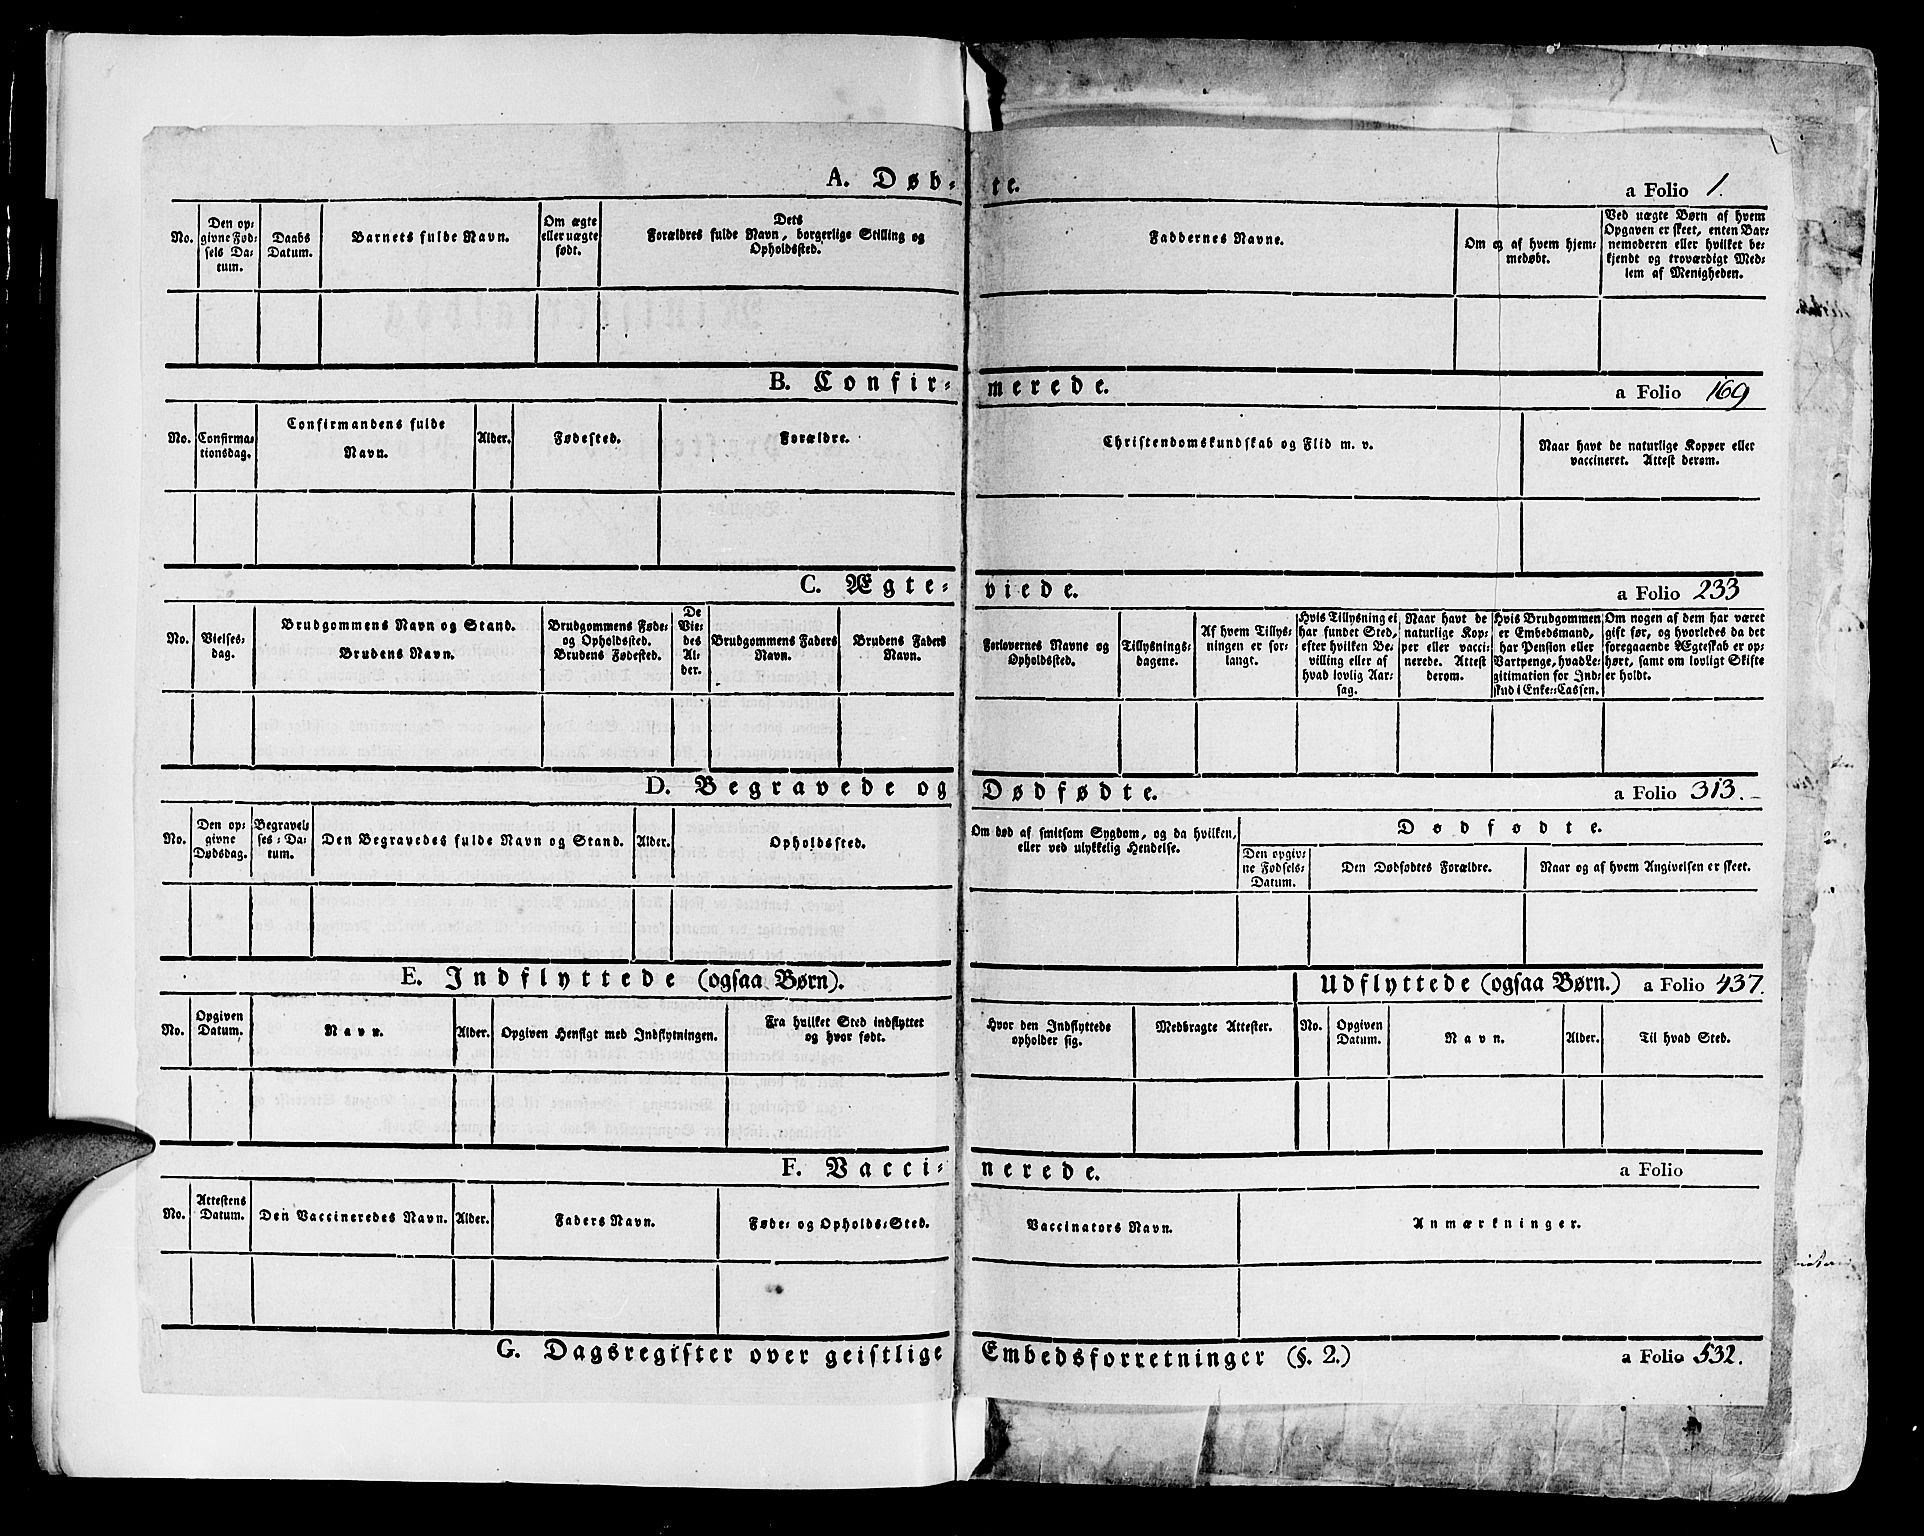 A. Døb- te. a Folio 1.
No.
Den op-
givne Fød-
sels Da-
tum.
Daabs
Datum.
Barnets fulde Navn.
Om ægte
eller uægte
født.
Dets
Forældres fulde Navn, borgerlige Stilling og
Opholdssted.
Faddernes Navne.
Om og af hvem hjem-
medøbt.
Ved uægte Børn af hvem
Opgaven er skeet, enten Bar-
nemoderen eller hvilket be-
kjendt og troværdigt Med-
lem af Menigheden.
B. Confir- merede. a Folio 169
No.
Confirma-
tionsdag.
Confirmandens fulde
Navn.
Alder.
Fødested.
Forældre.
Christendomskundskab og Flid m. v.
Naar havt de naturlige Kopper eller
vaccineret. Attest derom.
C. Ægte- viede. a Folio 233
No.
Vielses-
dag.
Brudgommens Navn og Stand.
Brudens Navn.
Brudgommens Føde-
og Opholdssted.
Brudens Fødested.
De
Vie-
des
Al-
der.
Brudgommens Faders
Navn.
Brudens Faders
Navn.
Forlovernes Navne og
Opholdssted.
Tillysnings-
dagene.
Af hvem Tillys-
ningen er for-
langt.
Hvis Tillysning ei
har fundet Sted,
efter hvilken Be-
villing eller af
hvad lovlig Aar-
sag.
Naar havt de
naturlige Kop-
per eller vacci-
nerede. Attest
derom.
Hvis Brudgommen
er Embedsmand,
har Pension eller
Vartpenge, hvad Le-
gitimation for Ind-
skud i Enke-Cassen.
Om nogen af dem har været
gift før, og hvorledes da det
foregaaende Ægteskab er op-
hørt, samt om lovligt Skifte
er holdt.
D. Begravede og Dødfødte. a Folio 313.
No.
Den op-
givne
Dødsdag.
Begravel-
ses-Da-
tum.
Den Begravedes fulde Navn og Stand.
Alder.
Opholdssted.
Om død af smitsom Sygdom, og da hvilken,
eller ved ulykkelig Hendelse.
Dødfødte.
Den opgiv-
ne Fødsels-
Datum.
Den Dødfødtes Forældre.
Naar og af hvem Angivelsen er skeet.
E. Indflyttede (ogsaa Børn). Udflyttede (ogsaa Børn.) a Folio 437.
No.
Opgiven
Datum.
Navn.
Alder.
Opgiven Hensigt med Indflytningen.
Fra hvilket Sted indflyttet
og hvor født.
Hvor den Indflyttede
opholder sig.
Medbragte Attester.
No.
Opgiven
Datum.
Navn.
Alder.
Til hvad Sted.
F. Vacci- nerede. a Folio
No.
Attestens
Datum.
Den Vaccineredes Navn.
Alder.
Faders Navn.
Føde- og Opholds-Sted.
Vaccinators Navn.
Anmærkninger.
G. Dagsregister over geistlige Embedsforretninger (§. 2.) a Folio 532.